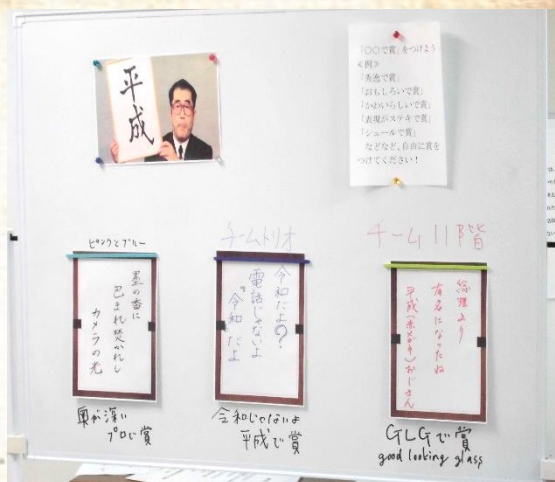 平成
「〇〇で賞」をつけよう
≪例≫
「秀逸で賞」
「おもしろいで賞」
「かわいらしいで賞」
「表現がステキで賞」
「シュールで賞」
などなど、自由に賞を
つけてください！
ピンクとブルー
墨の香に
包まれ焚かれし
カメラの光
奥が深い
プロで賞
チームトリオ
令和だよ？
電話じゃないよ
“令和”だよ
令和じゃないよ
平成で賞
チーム11階
総理より
有名になったね
平成おじさん
GLGで賞
good looking glass